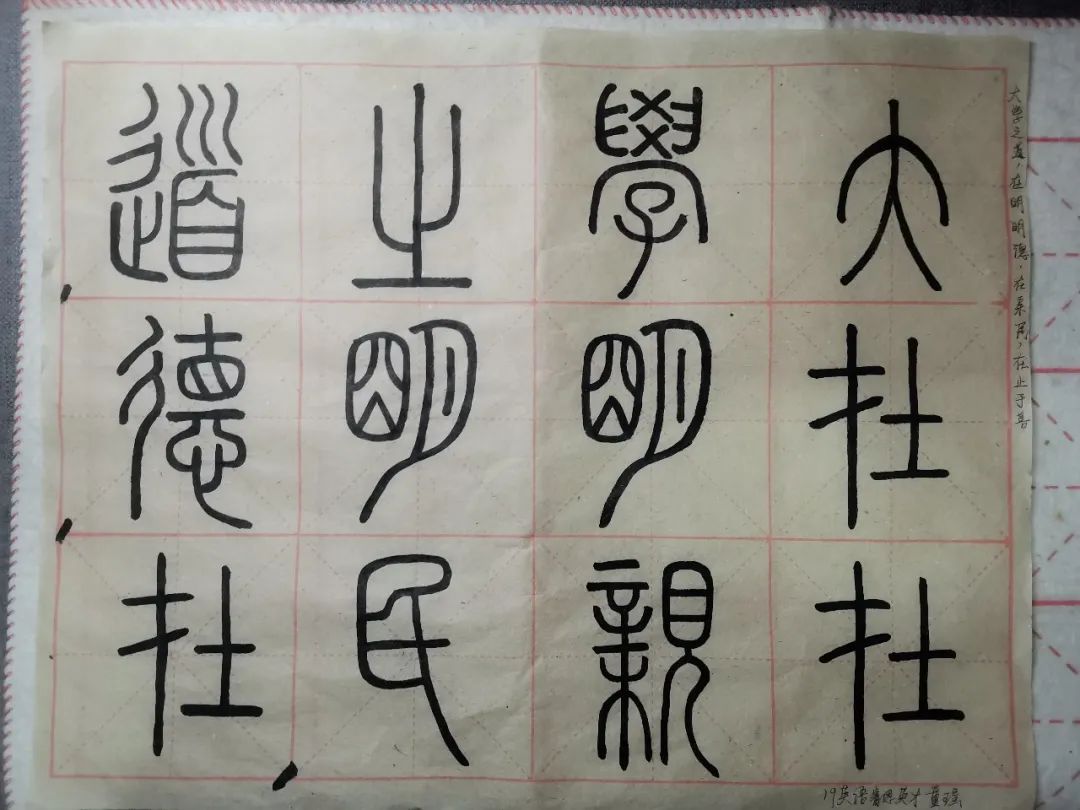 大學之道
在明明德
在親民在
大学之道，在明明德，在亲民，在止于善
19英语